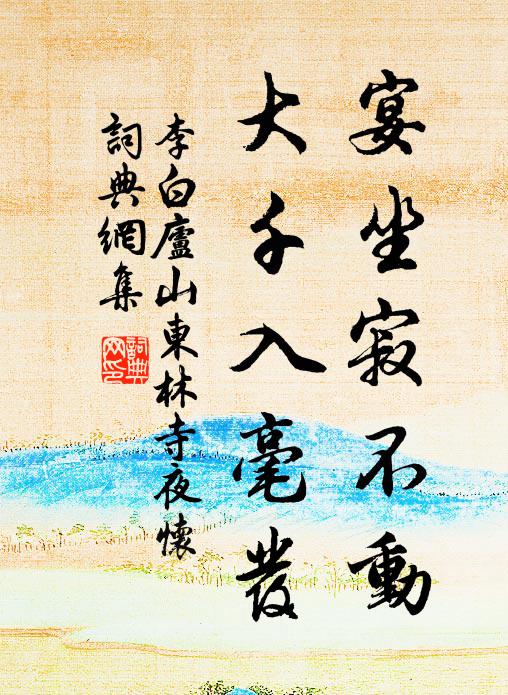 宴坐寂不動
大千入毫發
李白廬山東林寺夜懷
詞典網集
詞典
网印